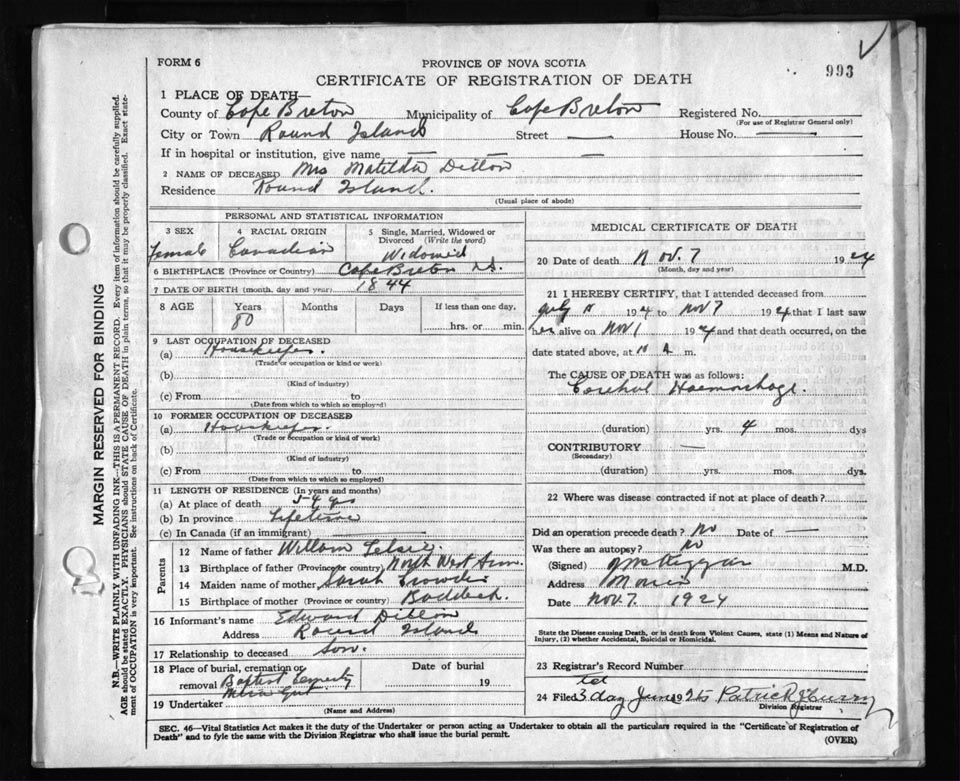 FORM 6
PROVINCE OF NOVA SCOTIA
993
CERTIFICATE OF REGISTRATION OF DEATH
1 PLACE OF DEATH—
County of Cape Breton Municipality of Cape Breton Registered No.
(For use of Registrar General only)
City or Town Round Island Street — House No. —
If in hospital or institution, give name — —
2 NAME OF DECEASED Mrs Matilda Dillon
Residence Round Island.
(Usual place of abode)
PERSONAL AND STATISTICAL INFORMATION
3 SEX 4 RACIAL ORIGIN 5 Single, Married, Widowed or
Divorced (Write the word)
female Canadian Widowed
6 BIRTHPLACE (Province or Country) Cape Breton N.S.
7 DATE OF BIRTH (month, day and year) 1844
8 AGE Years Months Days If less than one day,
80 hrs. or min.
9 LAST OCCUPATION OF DECEASED
(a) Housekeeper.
(Trade or occupation or kind or work)
(b)
(Kind of industry)
(c) From to
(Date from which to which so employed)
10 FORMER OCCUPATION OF DECEASED
(a) Housekeeper.
(Trade or occupation or kind of work)
(b)
(Kind of industry)
(c) From to
(Date from which to which so employed)
11 LENGTH OF RESIDENCE (In years and months)
(a) At place of death 54 yrs
(b) In province Lifetime
(c) In Canada (if an immigrant) —
Parents
12 Name of father William
13 Birthplace of father (Province or country) North West Arm.
14 Maiden name of mother Sarah
15 Birthplace of mother (Province or country) Baddeck.
16 Informant's name Edward Dillon
Address Round Island
17 Relationship to deceased Son.
18 Place of burial, cremation or Date of burial
removal Baptist Cemetery 19
Mira Gut.
19 Undertaker
(Name and Address)
MEDICAL CERTIFICATE OF DEATH
20 Date of death Nov. 7 1924
(Month, day and year)
21 I HEREBY CERTIFY, that I attended deceased from
July 11 1924 to Nov 7 1924 that I last saw
her alive on Nov 1 1924 and that death occurred, on the
date stated above, at 11 A m.
The CAUSE OF DEATH was as follows:
Cerebral Haemorrhage.
(duration) yrs. 4 mos. dys
CONTRIBUTORY —
(Secondary)
(duration) yrs. mos. dys.
22 Where was disease contracted if not at place of death?
Did an operation precede death? No Date of —
Was there an autopsy? No
(Signed) M.D.
Address
Date Nov. 7. 1924
State the Disease causing Death, or in death from Violent Causes, state (1) Means and Nature of
Injury, (2) whether Accidental, Suicidal or Homicidal.
23 Registrar's Record Number
24 Filed 3 day June 192 Patrick
Division Registrar
SEC. 46—Vital Statistics Act makes it the duty of the Undertaker or person acting as Undertaker to obtain all the particulars required in the "Certificate of Registration of
Death" and to fyle the same with the Division Registrar who shall issue the burial permit.
(OVER)
MARGIN RESERVED FOR BINDING
N.B.—WRITE PLAINLY WITH UNFADING INK—THIS IS A PERMANENT RECORD. Every item of information should be carefully supplied.
AGE should be stated EXACTLY. PHYSICIANS should STATE CAUSE OF DEATH in plain terms, so that it may be properly classified. Exact state-
ment of OCCUPATION is very important. See instructions on back of Certificate.